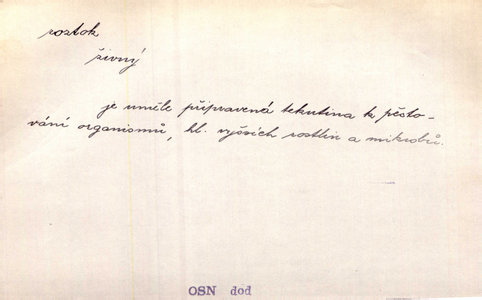 roztok
živný
je uměle připravená tekutina k pěsto-
vání organismů, hl. vyšších rostlin a mikrobů.
OSN dod